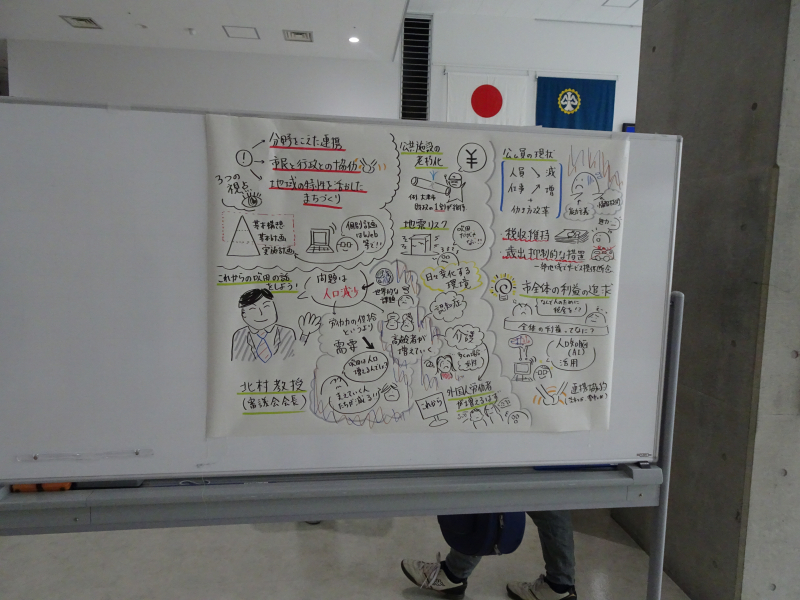 分野をこえた連携
①
市民と行政との協働
3つの視点
地域の特性を活かした
まちづくり
基本構想
基本計画
実施計画
個別計画
はWeb
等で!!
これからの吹田の話
をしよう!
問題は
人口減少
世界的な
課題
労働力の供給
というより
需要
高齢者が
増えていく
吹田は人口
増えるんでしょ?
支えていく人
たちが減る!!
北村教授
(審議会会長)
公共施設の
老朽化
¥
例) 水道
地震リスク
吹田
日々変化する
環境
認知症
介護
これから
外国人労働者
が増えるはず
公務員の現状
人員 ↘ 減
仕事 ↗ 増
+
働き方改革
税収維持
歳出抑制的な措置
市全体の利益の追求
なんで人のために
税金を!?
全体の利益ってなに?
人工知能
(AI)
活用
連携協約